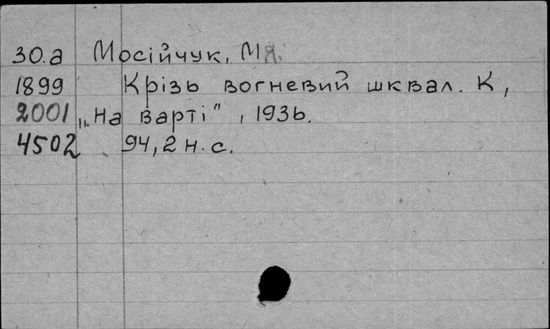 30.а Мосійчук, М.Я.
1899 Крізь вогневий шквал. К,
2001 „На варті", 1936.
4502 94,2 н.с.